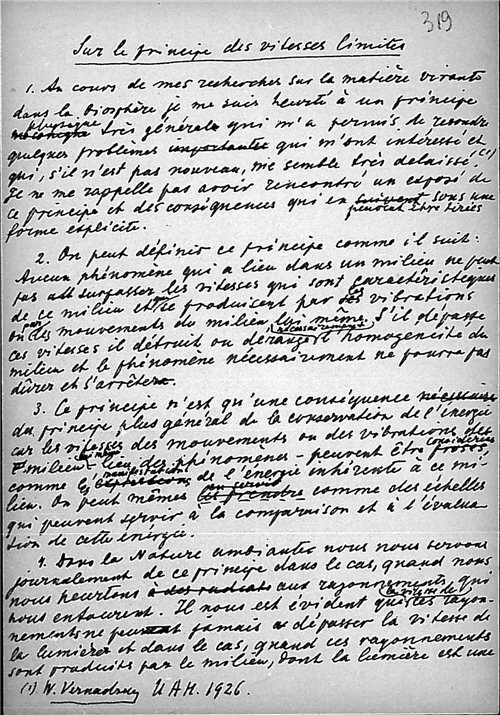 319
Sur le principe des vitesses limites
1. Au cours de mes recherches sur la matière vivante
dans la biosphère je me suis heurté à un principe
physique très générale qui m'a permis de resoudre
quelques problèmes importants qui m'ont intéressé et
qui, s'il n'est pas nouveau, me semble très delaissé.(1)
Je ne me rappelle pas avoir rencontré un exposé de
ce principe et des conséquences qui en suivent sous une
peuvent être tirées
forme explicite.
2. On peut définir ce principe comme il suit:
Aucun phénomène qui a lieu dans un milieu ne peut
pas surpasser les vitesses qui sont caractéristiques
de ce milieu et se produisent par les vibrations
ou par des mouvements du milieu lui même. S'il dépasse
ces vitesses il détruit ou dérange nécessairement l'homogéneité du
milieu et le phénomène nécessairement ne pourra pas
durer et s'arrêtera.
3. Ce principe n'est qu'une conséquence nécessaire
du principe plus général de la conservation de l'énergie
car les vitesses des mouvements ou des vibrations des
milieu - lieu des phénomènes - peuvent être considérées
comme manifestations de l'énergie inhérente à ce mi-
lieu. On peut mêmes s'en servir comme des échelles
qui peuvent servir à la comparaison et à l'évalua-
tion de cette énergie.
4. Dans la Nature ambiante nous nous servons
journalement de ce principe dans le cas, quand nous
nous heurtons aux rayonnements, qui
nous entourent. Il nous est évident que la vitesse de ces rayon-
nements ne peut jamais dépasser la vitesse de
la lumière et dans le cas, quand ces rayonnements
sont produits par le milieu, dont la lumière est une
(1) W. Vernadsky ИАН. 1926.